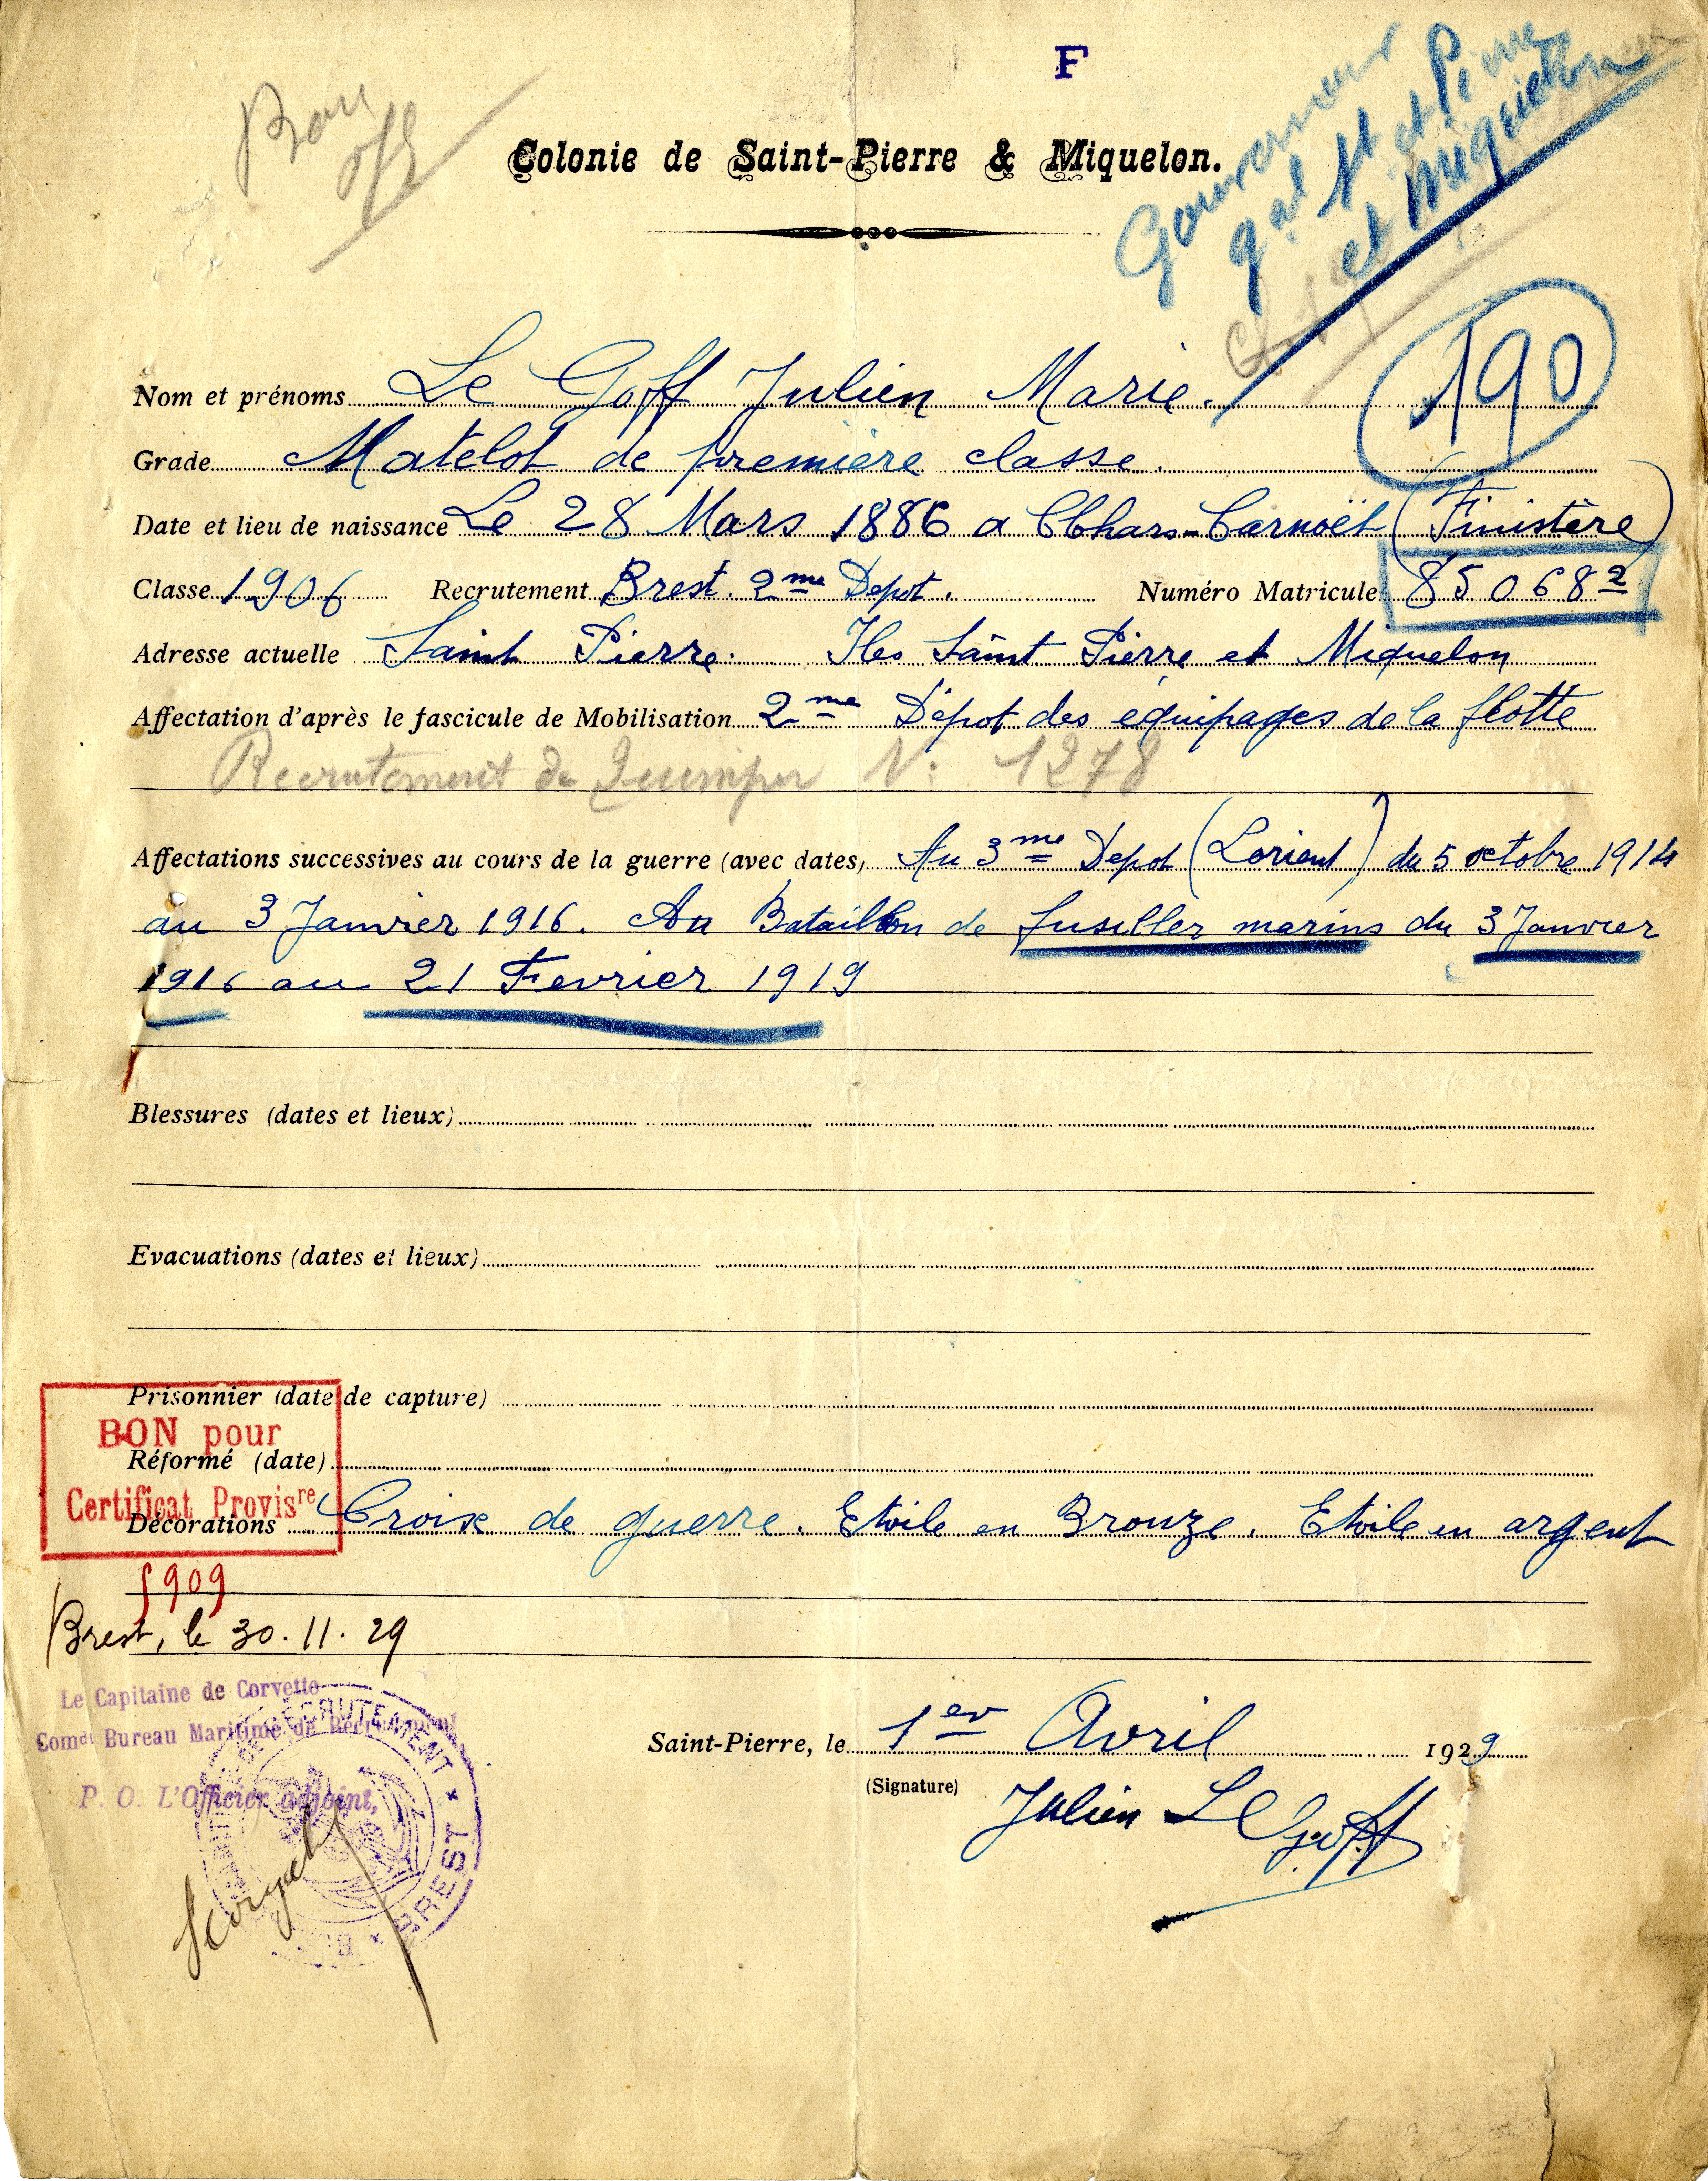 F
Bon
Gouverneur
gal St et Pierre
et Miquelon
Colonie de Saint-Pierre & Miquelon.
190
Nom et prénoms Le Goff Julien Marie.
Grade Matelot de première classe.
Date et lieu de naissance Le 28 Mars 1886 a Clohars-Carnoët (Finistère)
Classe 1906 Recrutement Brest. 2me Depot. Numéro Matricule 85068 2
Adresse actuelle Saint Pierre. Iles Saint Pierre et Miquelon
Affectation d'après le fascicule de Mobilisation 2me Dépot des équipages de la flotte
Recrutement de Quimper N: 1278
Affectations successives au cours de la guerre (avec dates) Au 3me Depot (Lorient) du 5 octobre 1914
au 3 Janvier 1916. Au Bataillon de fusiller marins du 3 Janvier
1916 au 21 Fevrier 1919
Blessures (dates et lieux)
Evacuations (dates et lieux)
Prisonnier (date de capture)
BON pour
Réformé (date)
Certificat Provisre
Décorations Croix de guerre. Etoile en Bronze. Etoile en argent
5909
Brest, le 30.11.29
Le Capitaine de Corvette
Comdt Bureau Maritime de Recrutement
P. O. L'Officier adjoint,
RECRUTEMENT * BREST *
Saint-Pierre, le 1er Avril 1929
(Signature)
Julien Le Goff